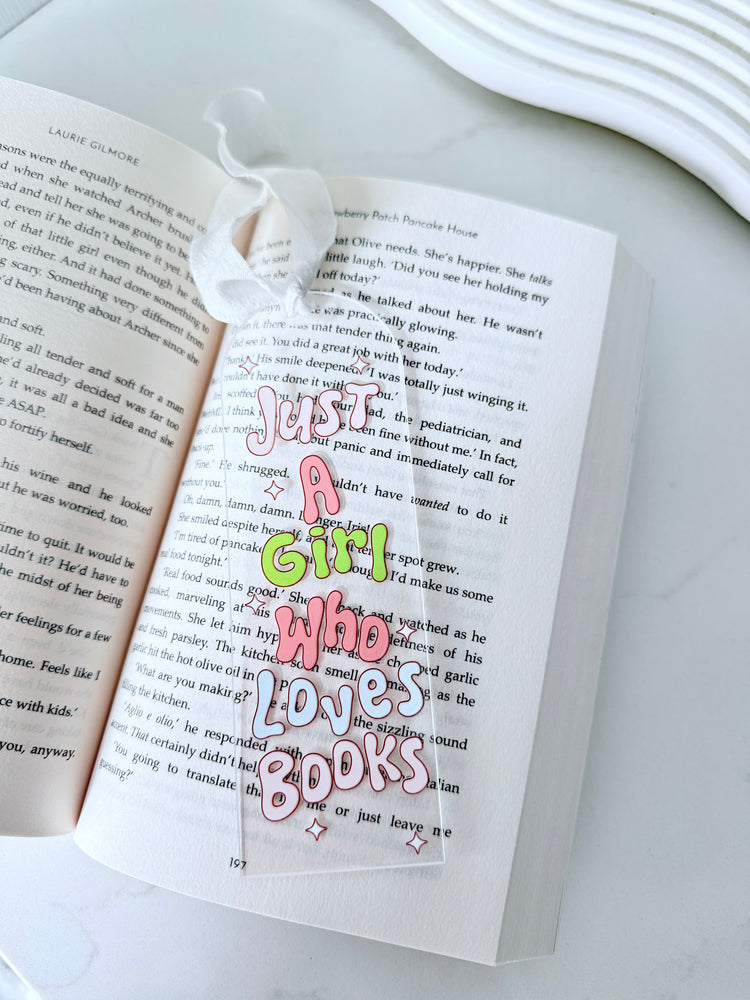 LAURIE GILMORE
sons were the equally terrifying and
when she watched Archer
ead and tell her she was going to be
d, even if he didn't believe it yet.
of that little girl even though he did
ng, either. And it had done something to
g scary. Something very different from
he'd been having about Archer since she
and soft.
ling all tender and soft for a man
he'd already decided was far too
, it was all a bad idea and she
e ASAP.
to fortify herself.
his wine and he looked
out he was worried, too.
time to quit. It would be
uldn't it? He'd have to
he midst of her being
er feelings for a few
home. Feels like I
ce with kids.'
you, anyway.
wberry Patch Pancake House
hat Olive needs. She's happier. She talks
little laugh. 'Did you see her holding my
l off today?'
as he talked about her. He wasn't
was practically glowing.
it, there was that tender thing again.
did see it. You did a great job with her today.'
His smile deepened. 'I was totally just winging it.
couldn't have done it with you.'
scoffed. the pediatrician, and
I think been fine without me.' In fact,
but panic and immediately call for
back-up.
'Fine.' He shrugged. wouldn't have wanted to do it
without you.'
Oh, damn, damn, damn. Danger, Iris!
She smiled despite herself, and spot grew.
'I'm tired of pancake I'd make us some
real food tonight.'
'Real food sounds good.' She back and watched as he
cooked, marveling at his deftness of his
movements. She let him her as he chopped garlic
and fresh parsley. The kitchen smell as the
garlic hit the hot olive oil in
'What are you making?' the sizzling sound
filling the kitchen.
'Aglio e olio,' he responded
accent. That certainly didn't help
'You going to translate that me or just leave me
guessing?'
197
Just
A
Girl
Who
Loves
Books